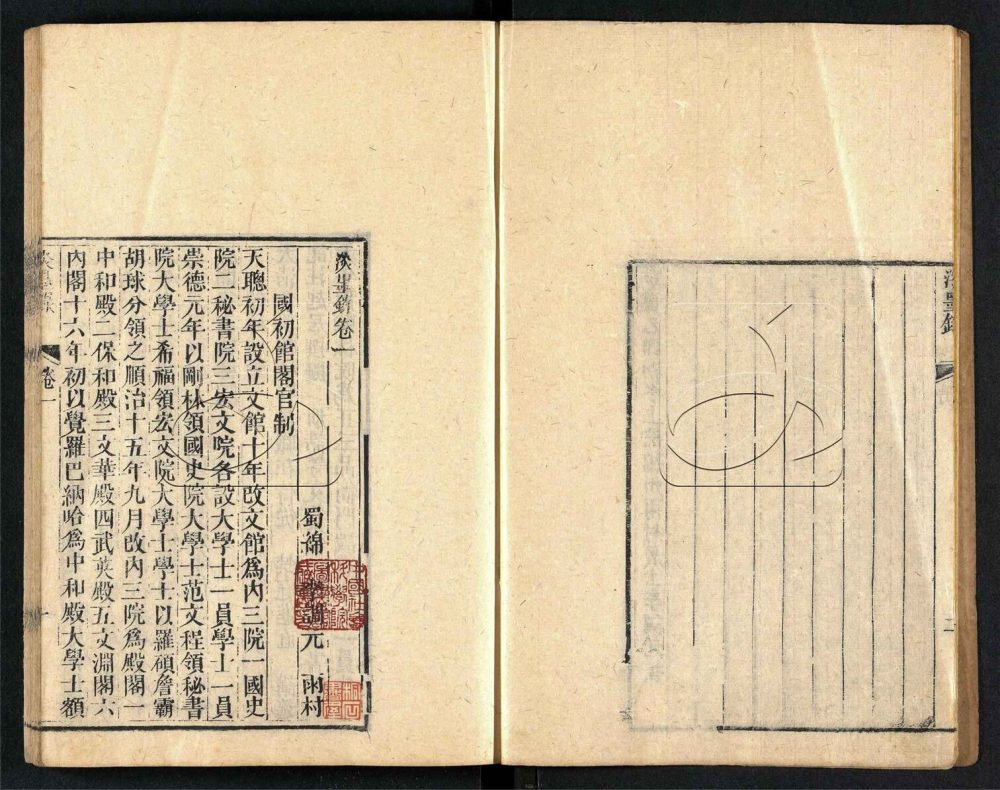 淡墨錄
二
淡墨錄卷一
蜀綿 李調元 雨村
國初館閣官制
天聰初年設立文館十年改文館為內三院一國史
院二秘書院三宏文院各設大學士一員學士一員
崇德元年以剛林領國史院大學士范文程領秘書
院大學士希福領宏文院大學士學士以羅碩詹霸
胡球分領之順治十五年九月改內三院為殿閣一
中和殿二保和殿三文華殿四武英殿五文淵閣六
內閣十六年初以覺羅巴納哈為中和殿大學士額
卷一
一